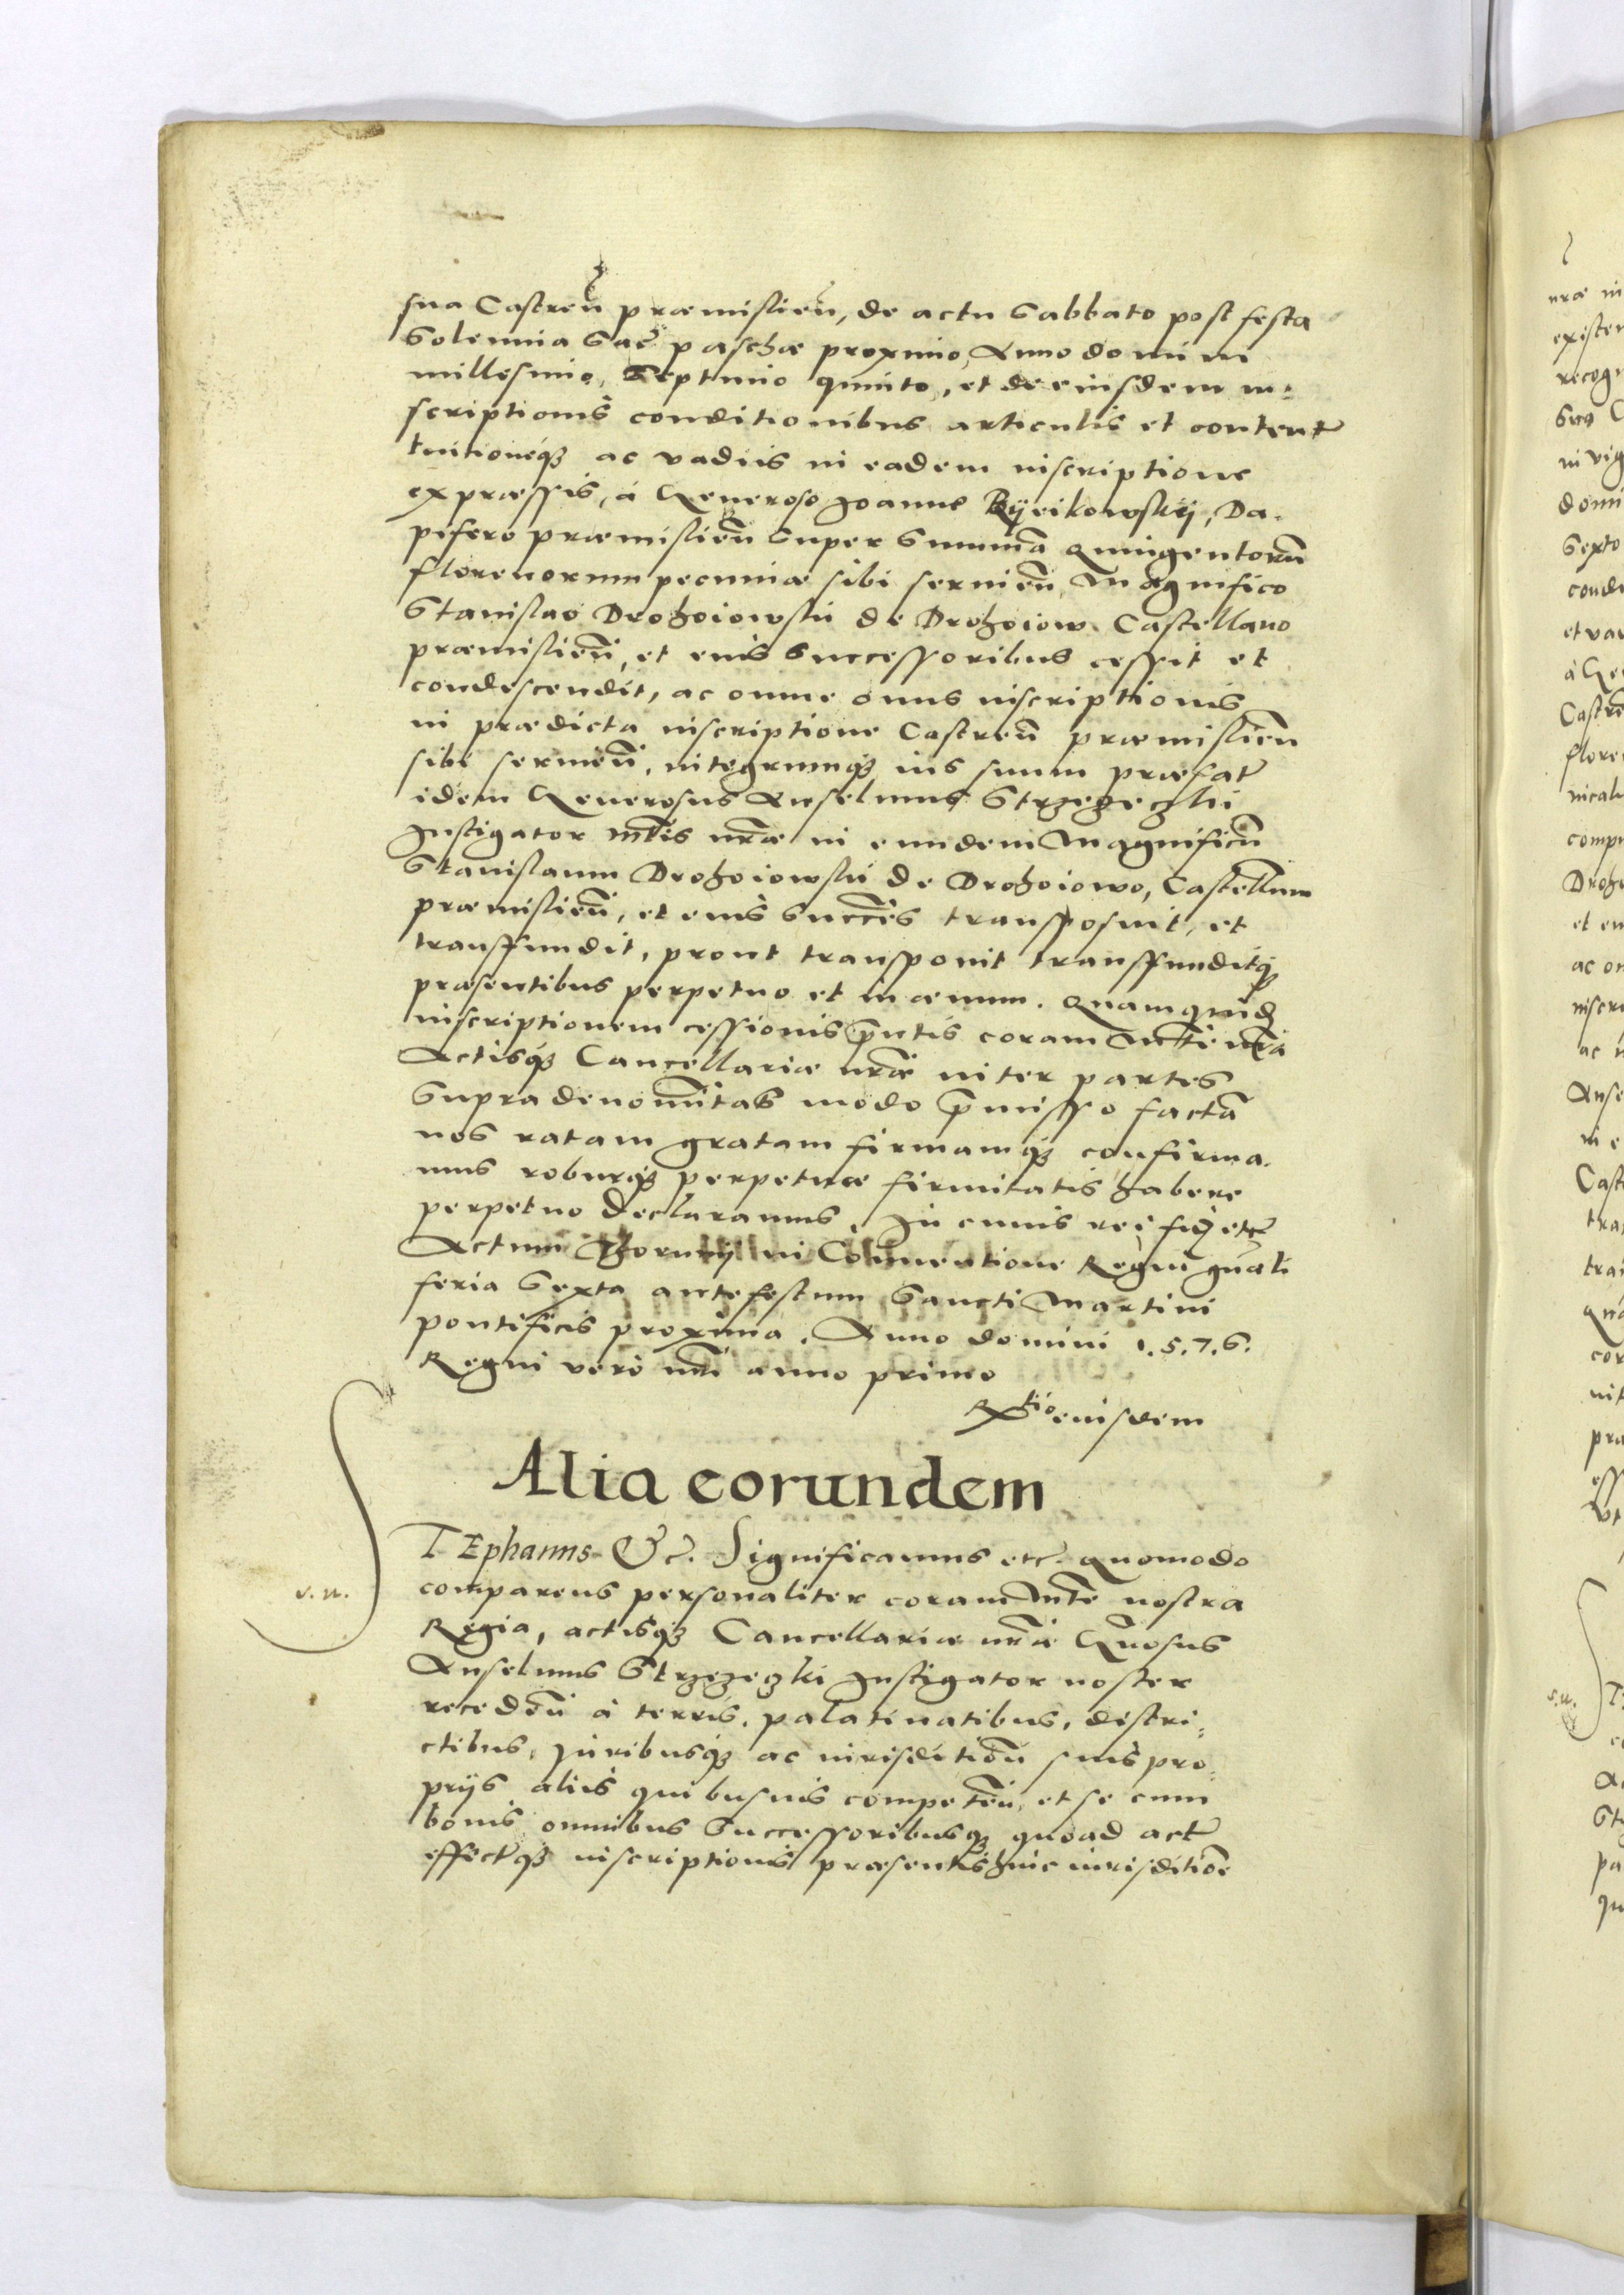 sua Castreñ præmislieñ, de actu Sabbato post festa
Solennia Sac̃ paschæ proximo, Anno domini
millesimo, Septimo quinto, et de eiusdem in:
scriptionis conditionibus articulis et content̃
tuitioneq̃ ac vadiis in eadem inscriptione
expræssis, à Generoso Joanne Ryeikowskij, Da.
pifero præmislieñ super Summã Quingentorũ
florenorum pecuniæ sibi servieñ, Magnifico
Stanislao Drohoiowski de Drohoiow Castellano
præmislieñ, et eius Successoribus cessit et
condescendit, ac omne onus inscriptionis
in prædicta inscriptione Castreñ præmislieñ
sibi servieñ, integrumq̃ ius suum præfat̃
idem Generosus Anselmus Strzezeczki
Instigator M̃tis nr̃æ in eundem Magnificũ
Stanislaum Drohoiowski de Drohoiowo, Castellnum
præmislieñ, et eius Succẽs transposuit, et
transfundit, prout transponit transfunditq̃
præsentibus perpetuo et in ævum. Quamquid̃
inscriptionem cessionis p̃ntis coram M̃te nr̃a
Actisq̃ Cancellariæ nr̃æ inter partes
Supradenom̃itas modo p̃misso factã
nos ratam gratam firmamq̃ confirma.
mus roburq̃ perpetuæ firmitatis habere
perpetuo declaramus. In cuius rei fid̃ etc̃
Actum Thorunij in Conventione Regni gñali
feria Sexta ante festum Sancti Martini
pontificis proxima. Anno domini 1.5.7.6.
Regni vero nr̃i anno primo
Rtio eiusdem
Alia eorundem
STEphanus &c. Significamus etc. quomodo
v. n.
comparens personaliter coram M̃te nostra
Regia, actisq̃ Cancellariæ nr̃æ Gñosus
Anselmus Strzezeczki Instigator noster
recedeñ à terris, palatinatibus, distri:
ctibus, Juribusq̃ ac iurisdĩtioñ suis pro:
prijs aliis quibusuis competeñ, et se cum
bonis omnibus Successoribusq̃ quoad act̃
effect̃q̃ inscriptionis præsentis huic iurisditiõe